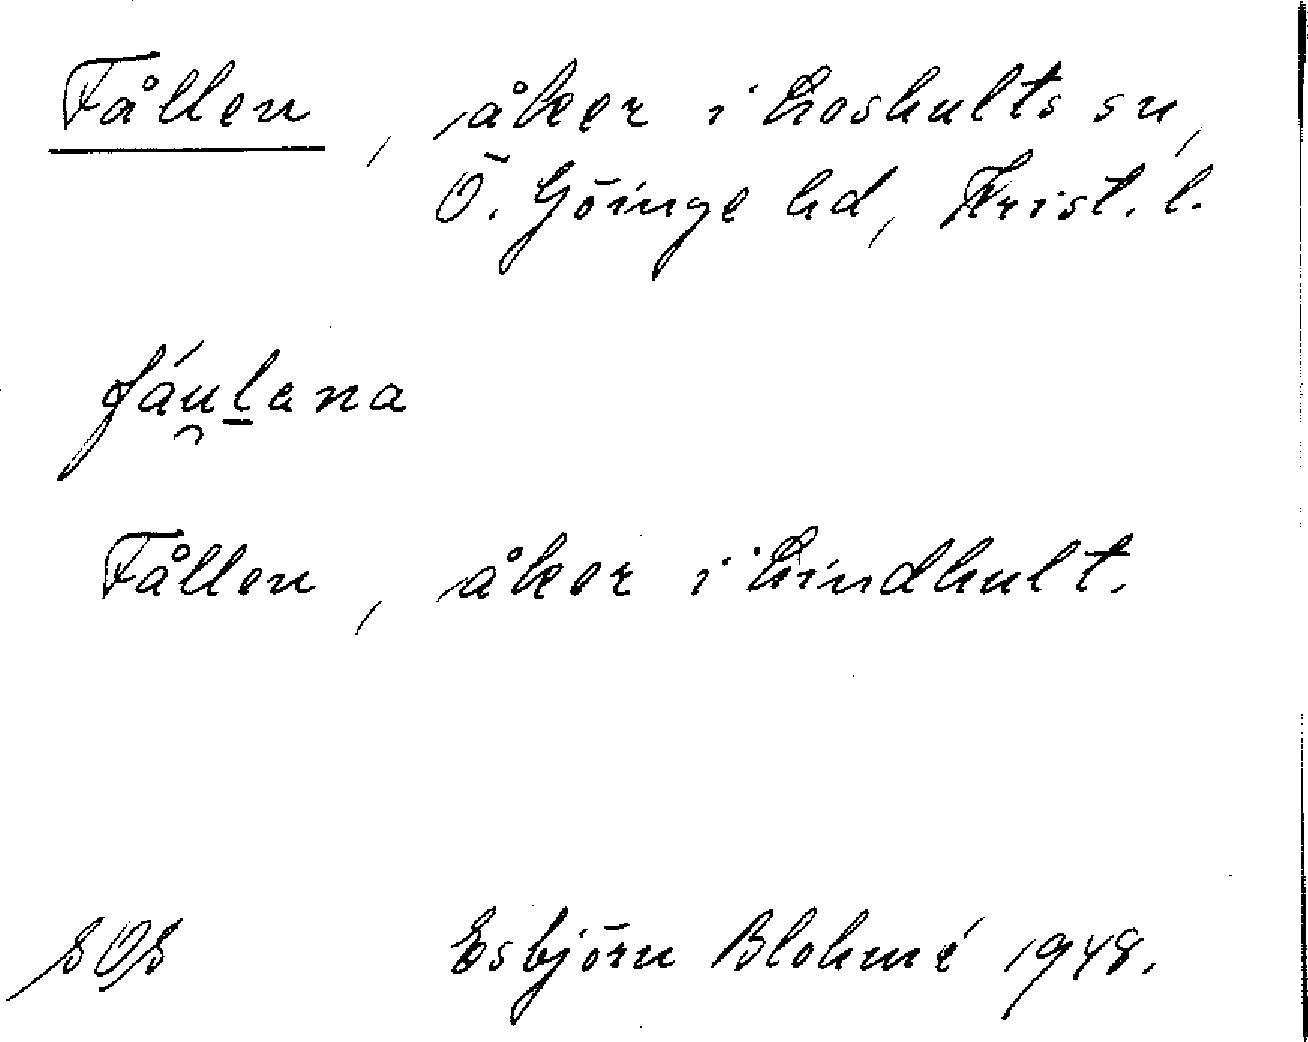 Fållen, åker i Loshults sn,
Ö. Göinge hd, Krist. l.
fáu̯l̠ana
Fållen, åker i Lindhult.
SOS Esbjörn Blohmé 1948.